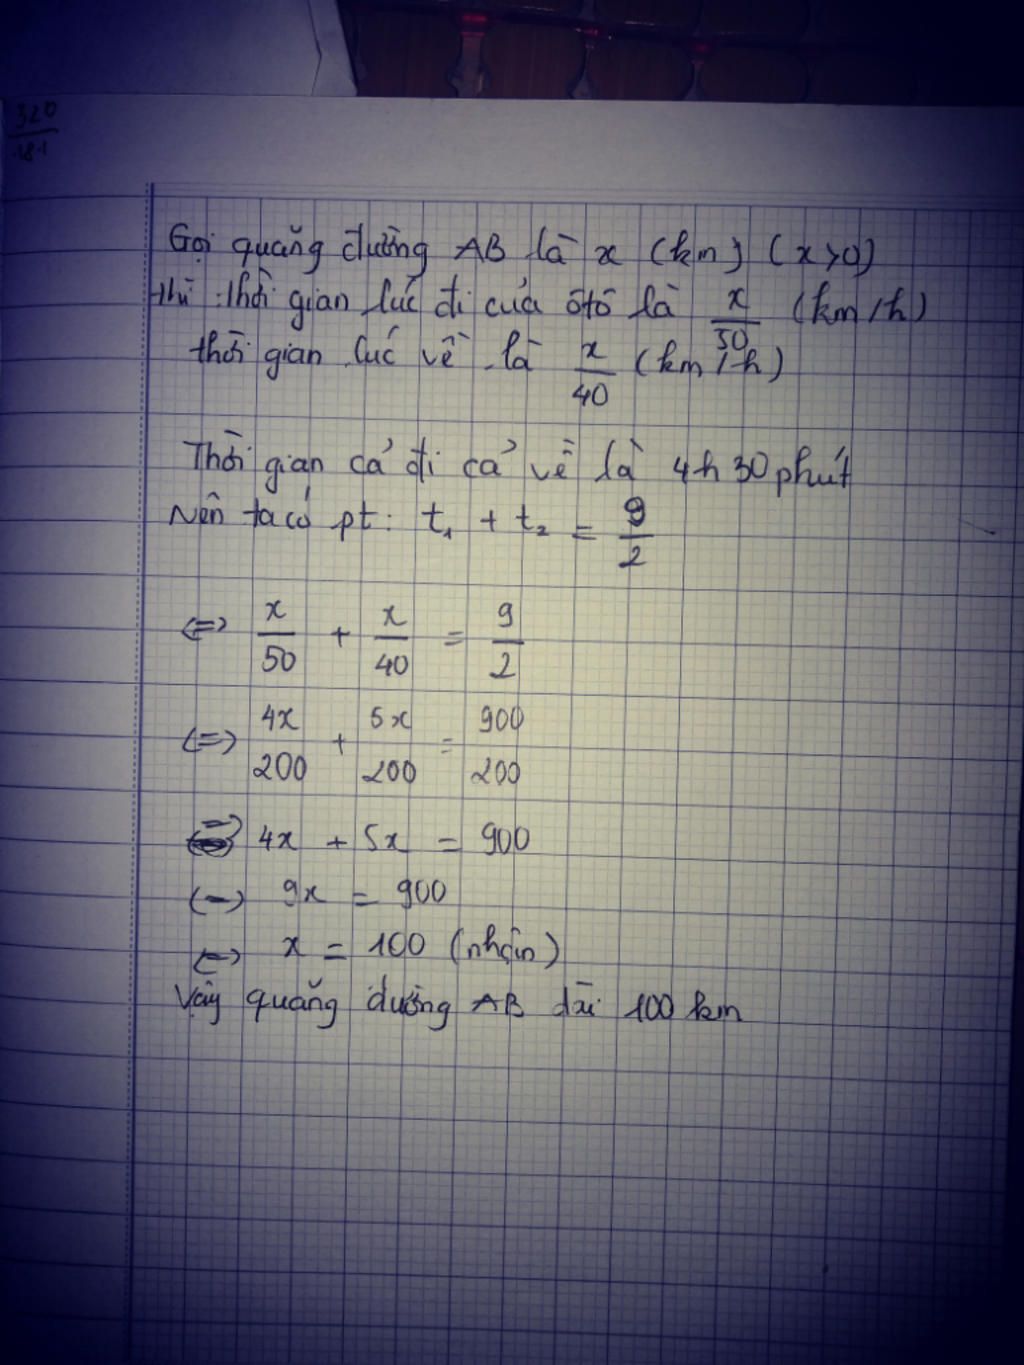 320
181
Gọi quãng đường AB là x (km) (x>0)
thì thời gian lúc đi của ôtô là x/50 (km/h)
thời gian lúc về là x/40 (km/h)
Thời gian cả đi cả về là 4h 30 phút
Nên ta có pt: t₁ + t₂ = 9/2
<=> x/50 + x/40 = 9/2
<=> 4x/200 + 5x/200 = 900/200
<=> 4x + 5x = 900
<=> 9x = 900
<=> x = 100 (nhận)
Vậy quãng đường AB dài 100 km